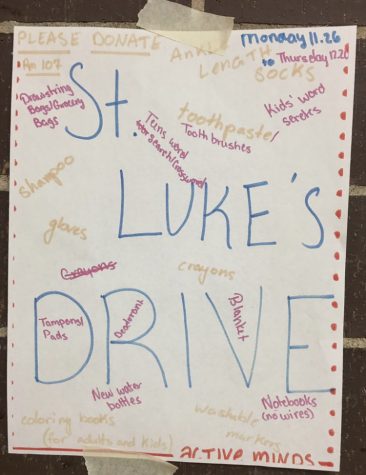 PLEASE DONATE
Rm 107
Monday 11.26
to Thursday 12.20
ANKLE
LENGTH
SOCKS
Drawstring
Bags/Grocery
Bags
St.
Teens word
search/crossword
toothpaste/
Toothbrushes
Kids' word
serches
shampoo
LUKE'S
gloves
Crayons
crayons
DRIVE
Tampons/
Pads
Deodorant
Blanket
New water
bottles
Notebooks
(no wires)
coloring books
(for adults and kids)
washable
markers
ACTIVE MINDS